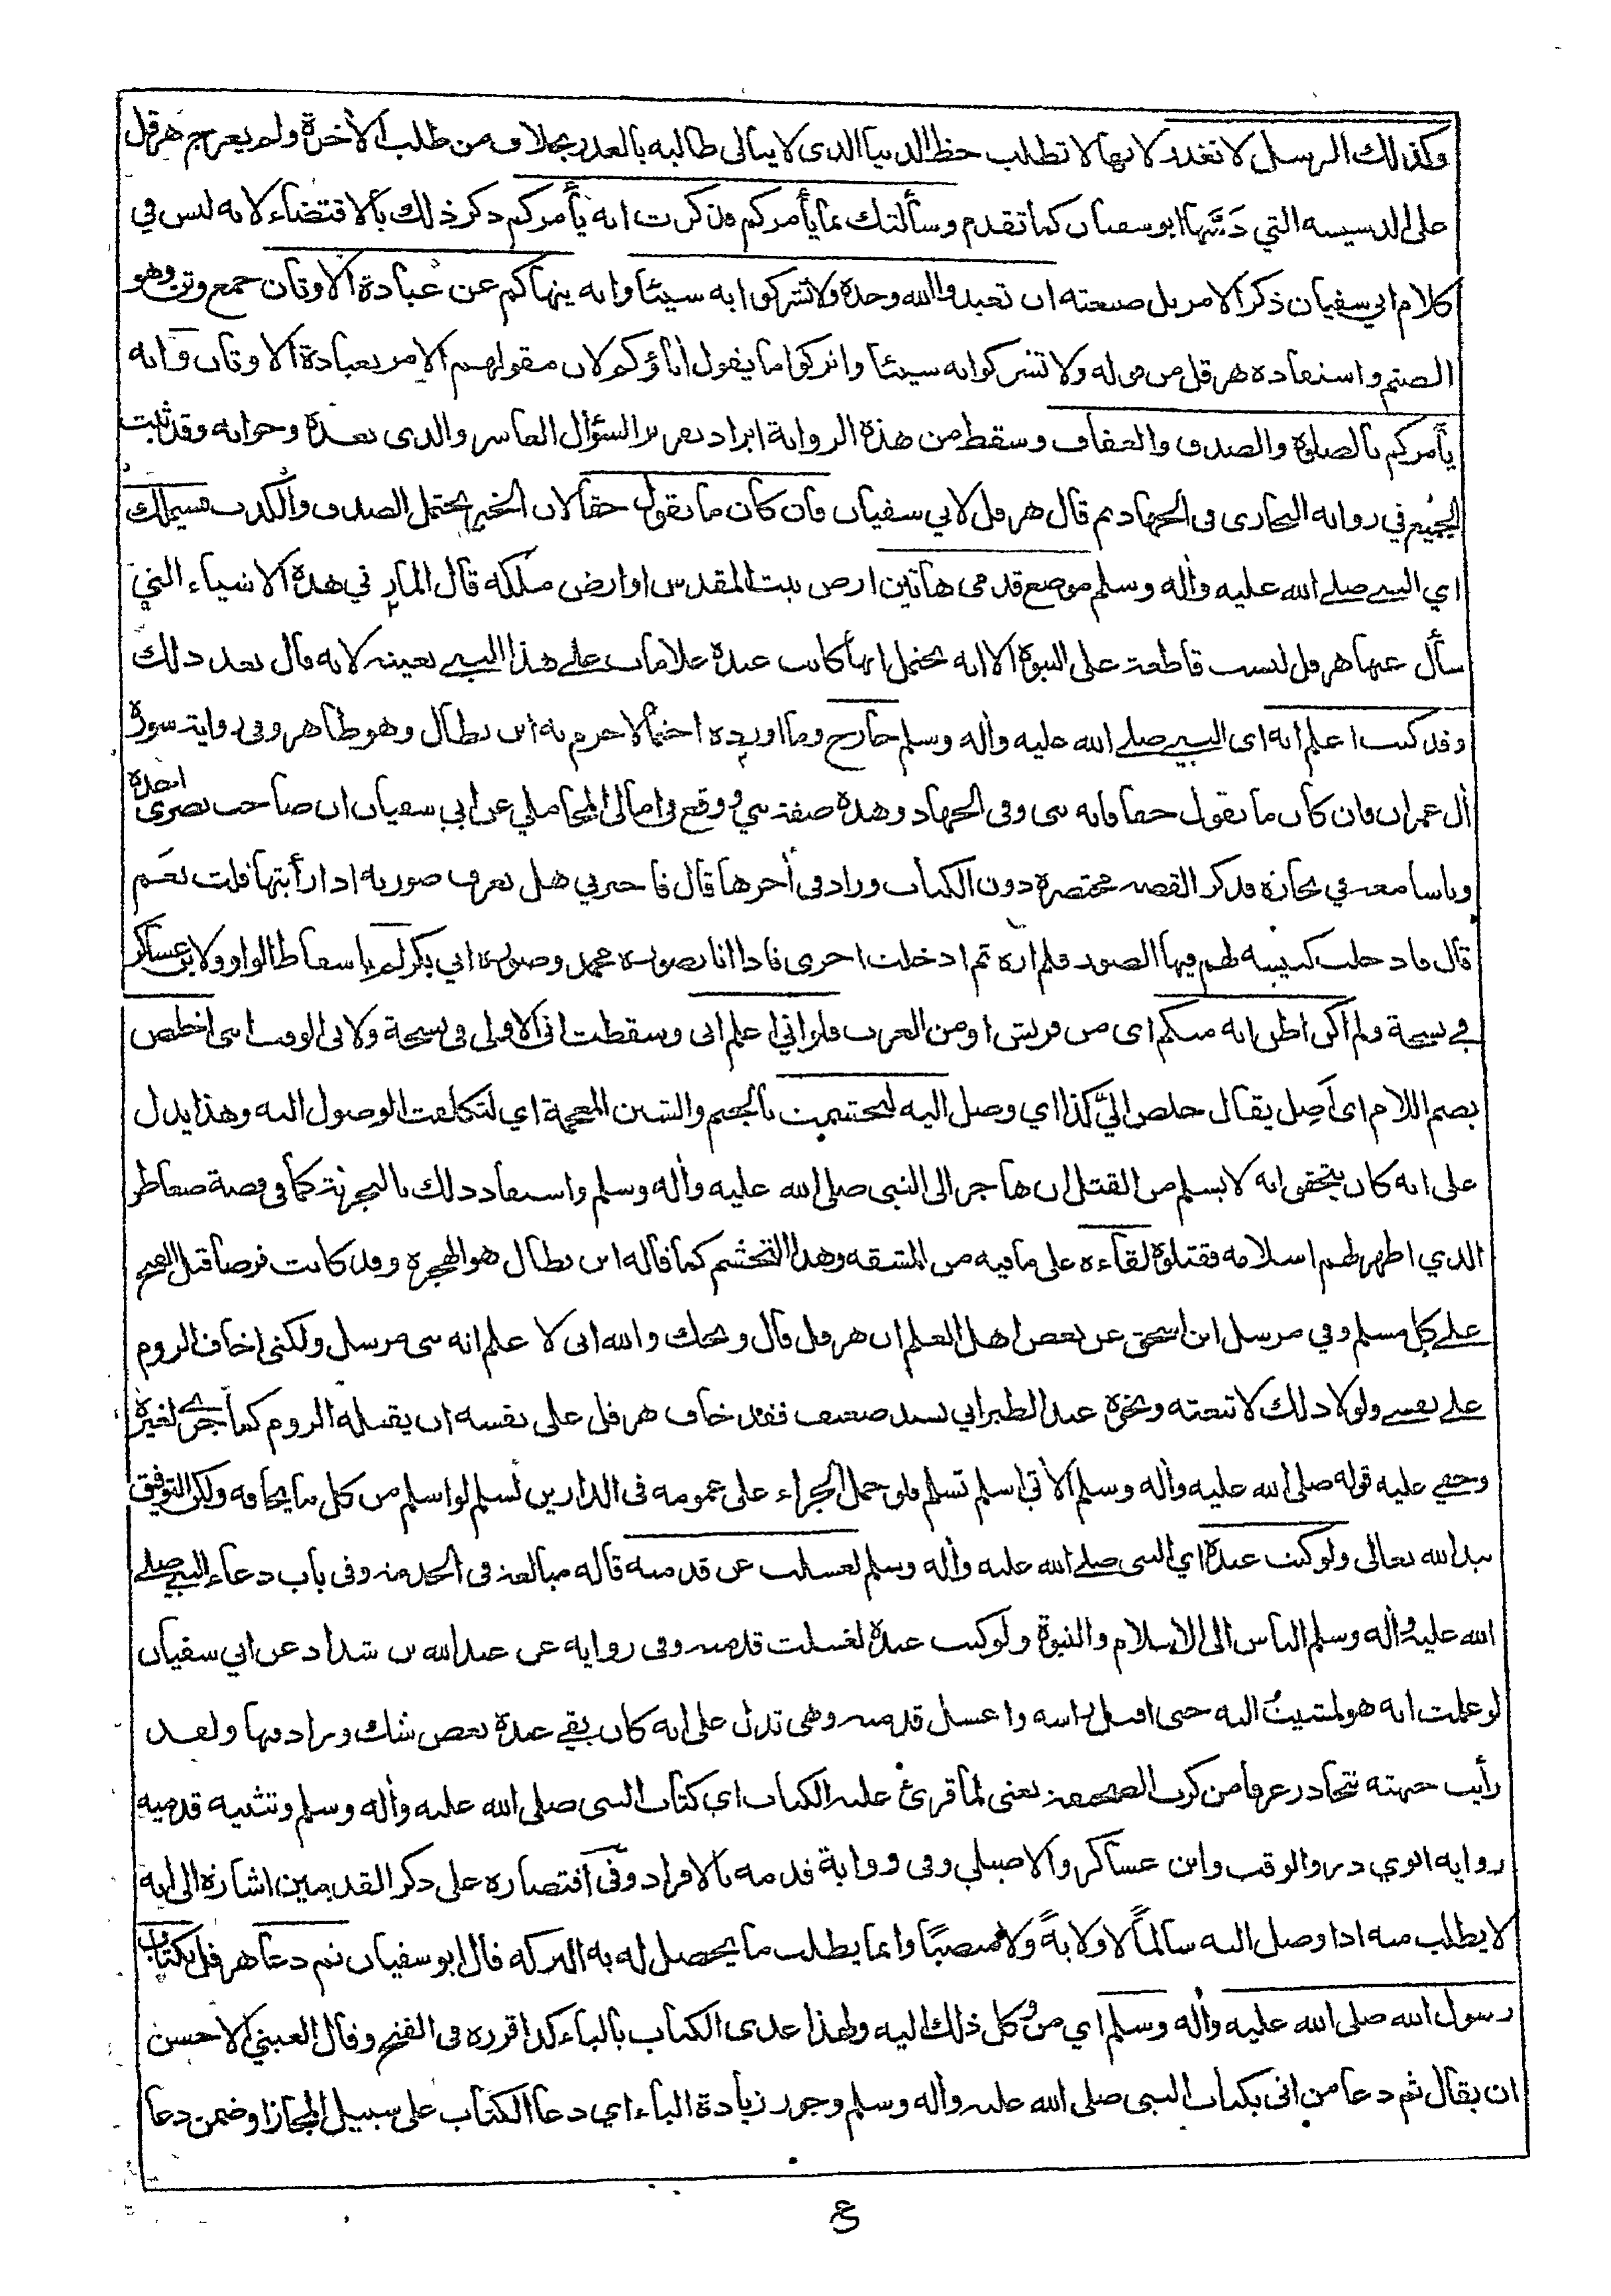 وكذلك الرسل لا تغدر لانها لا تطلب حظ الدنيا الذي لا يبالى طالبه بالغدر بخلاف من طلب الأخرة ولم يعرج هرقل
على الدسيسه التي دسّها ابو سفيان كما تقدم وسألتك بما يأمركم فذكرت انه يأمركم ذكر ذلك بالاقتضاء لانه ليس في
كلام ابي سفيان ذكر الامر بل صيغته ان تعبدوا الله وحده ولا تشركوا به شيئا وانه ينهاكم عن عبادة الاوثان جمع وثن وهو
الصنم واستفاده هرقل من قوله ولا تشركوا به شيئا واتركوا ما يقول أباؤكم لان مقولهم الامر بعبادة الاوثان وانه
يأمركم بالصلوة والصدق والعفاف وسقط من هذه الرواية ايراد تقرير السؤال العاشر والذي بعده وجوابه وقد ثبت
الجميع في رواية البخاري في الجهاد ثم قال هرقل لابي سفيان فان كان ما تقول حقا لان الخبر يحتمل الصدق والكذب فسيملك
اي النبي صلى الله عليه وأله وسلم موضع قدمي هاتين ارض بيت المقدس او ارض ملكه قال المازري في هذه الاشياء التي
سأل عنها هرقل ليست قاطعة على النبوة الا انه يحتمل انها كانت عنده علامات على هذا النبي بعينه لانه قال بعد ذلك
وقد كنت اعلم انه اى النبي صلى الله عليه وأله وسلم خارج وما اورده احتمالا جزم به ابن بطال وهو ظاهر وفي رواية سورة
أل عمران فان كان ما تقول حقا فانه نبي وفي الجهاد وهذه صفة نبي ووقع في امالي المحاملي عن ابي سفيان ان صاحب بصرى اخذه
وناسا معه في تجارة فذكر القصه مختصرة دون الكتاب وزاد في أخرها قال فاخبرني هل تعرف صورته اذا رأيتها قلت نعم
قال فادخلت كنيسه لهم فيها الصور فلم اره ثم ادخلت اخرى فاذا انا بصورة محمد وصورة ابي بكر لم باسقاط الواو ولابن عساكر
في نسخة ولم اكن اظن انه منكم اى من قريش او من العرب فلو اني اعلم اني وسقطت اني الاولى في نسخة ولابي الوقت انني اخلص
بضم اللام اى أصل يقال خلص الى كذا اي وصل اليه لتجشمت بالجيم والشين المعجمة اي لتكلفت الوصول اليه وهذا يدل
على انه كان يتحقق انه لا يسلم من القتل ان هاجر الى النبي صلى الله عليه وأله وسلم واستفاد ذلك بالتجربة كما في قصة ضغاطر
الذي اظهر لهم اسلامه فقتلوه لقاءه على ما فيه من المشقه وهذا التجشم كما قاله ابن بطال هو الهجرة وقد كانت فرضا قبل الفتح
على كل مسلم وفي مرسل ابن اسحق عن بعض اهل العلم ان هرقل قال ويحك والله اني لا علم انه نبي مرسل ولكني اخاف الروم
على نفسي ولولا ذلك لا تبعته ونحوه عند الطبراني بسند ضعيف فقد خاف هرقل على نفسه ان يقتله الروم كما جرى لغيره
وخفي عليه قوله صلى الله عليه وأله وسلم الأتي اسلم تسلم فلو حمل الجزاء على عمومه في الدارين لسلم لو اسلم من كل ما يخافه ولكن التوفيق
بيد الله تعالى ولو كنت عنده اي النبي صلى الله عليه وأله وسلم لغسلت عن قدميه قاله مبالغة في الخدمة وفي باب دعاء النبي صلى
الله عليه وأله وسلم الناس الى الاسلام والنبوة ولو كنت عنده لغسلت قدميه وفي روايه عن عبد الله بن شداد عن ابي سفيان
لو علمت انه هو لمشيت اليه حتى اقبل راسه واغسل قدميه وهي تدل على انه كان بقى عنده بعض شك وزاد فيها ولقد
رأيت جبهته تتحادر عرقا من كرب الصحيفة يعني لما قرئ عليه الكتاب اي كتاب النبي صلى الله عليه وأله وسلم وتثنيه قدميه
روايه ابوي ذر والوقت وابن عساكر والاصيلي وفي رواية قدمه بالافراد وفي اقتصاره على ذكر القدمين اشارة الى انه
لا يطلب منه اذا وصل اليه سالماً لا ولايةً ولا منصبًا وانما يطلب ما يحصل له به البركه قال ابو سفيان ثم دعا هرقل بكتاب
رسول الله صلى الله عليه وأله وسلم اي من وكل ذلك اليه ولهذا عدى الكتاب بالباء كذا قرره في الفتح وقال العيني الاحسن
ان يقال ثم دعا من اتى بكتاب النبي صلى الله عليه وأله وسلم وجوز زيادة الباء اي دعا الكتاب على سبيل المجاز او ضمن دعا